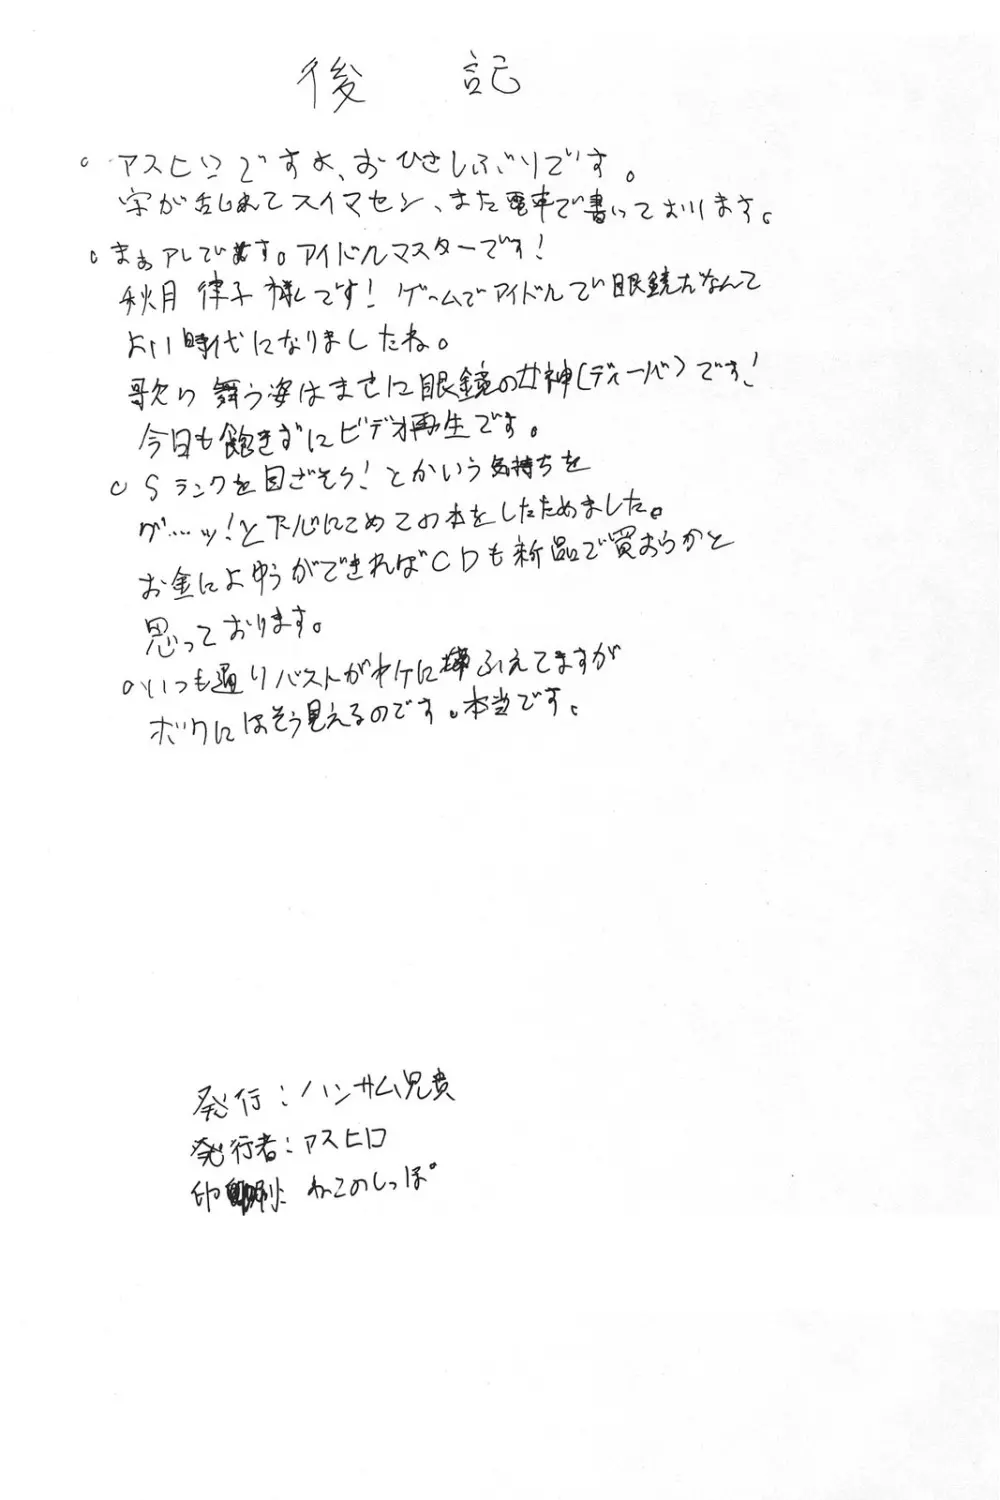 後記
○アスヒロですよ、おひさしぶりです。
字が乱れてスイマセン、また電車で書いております。
○まぁアレです。アイドルマスターです!
秋月 律子 様です! ゲームでアイドルで眼鏡だなんて
よい時代になりましたね。
歌い 舞う姿はまさに眼鏡の女神(ディーバ)です!
今日も飽きずにビデオ再生です。
○Sランクを目ざそう! とかいう気持ちを
グ…ッ!と下心にこめてこの本をしたためました。
お金によゆうができればCDも新品で買おうかと
思っております。
○いつも通りバストがヤケにふえてますが
ボクにはそう見えるのです。本当です。
発行:ハンサム兄貴
発行者:アスヒロ
印刷:ねこのしっぽ